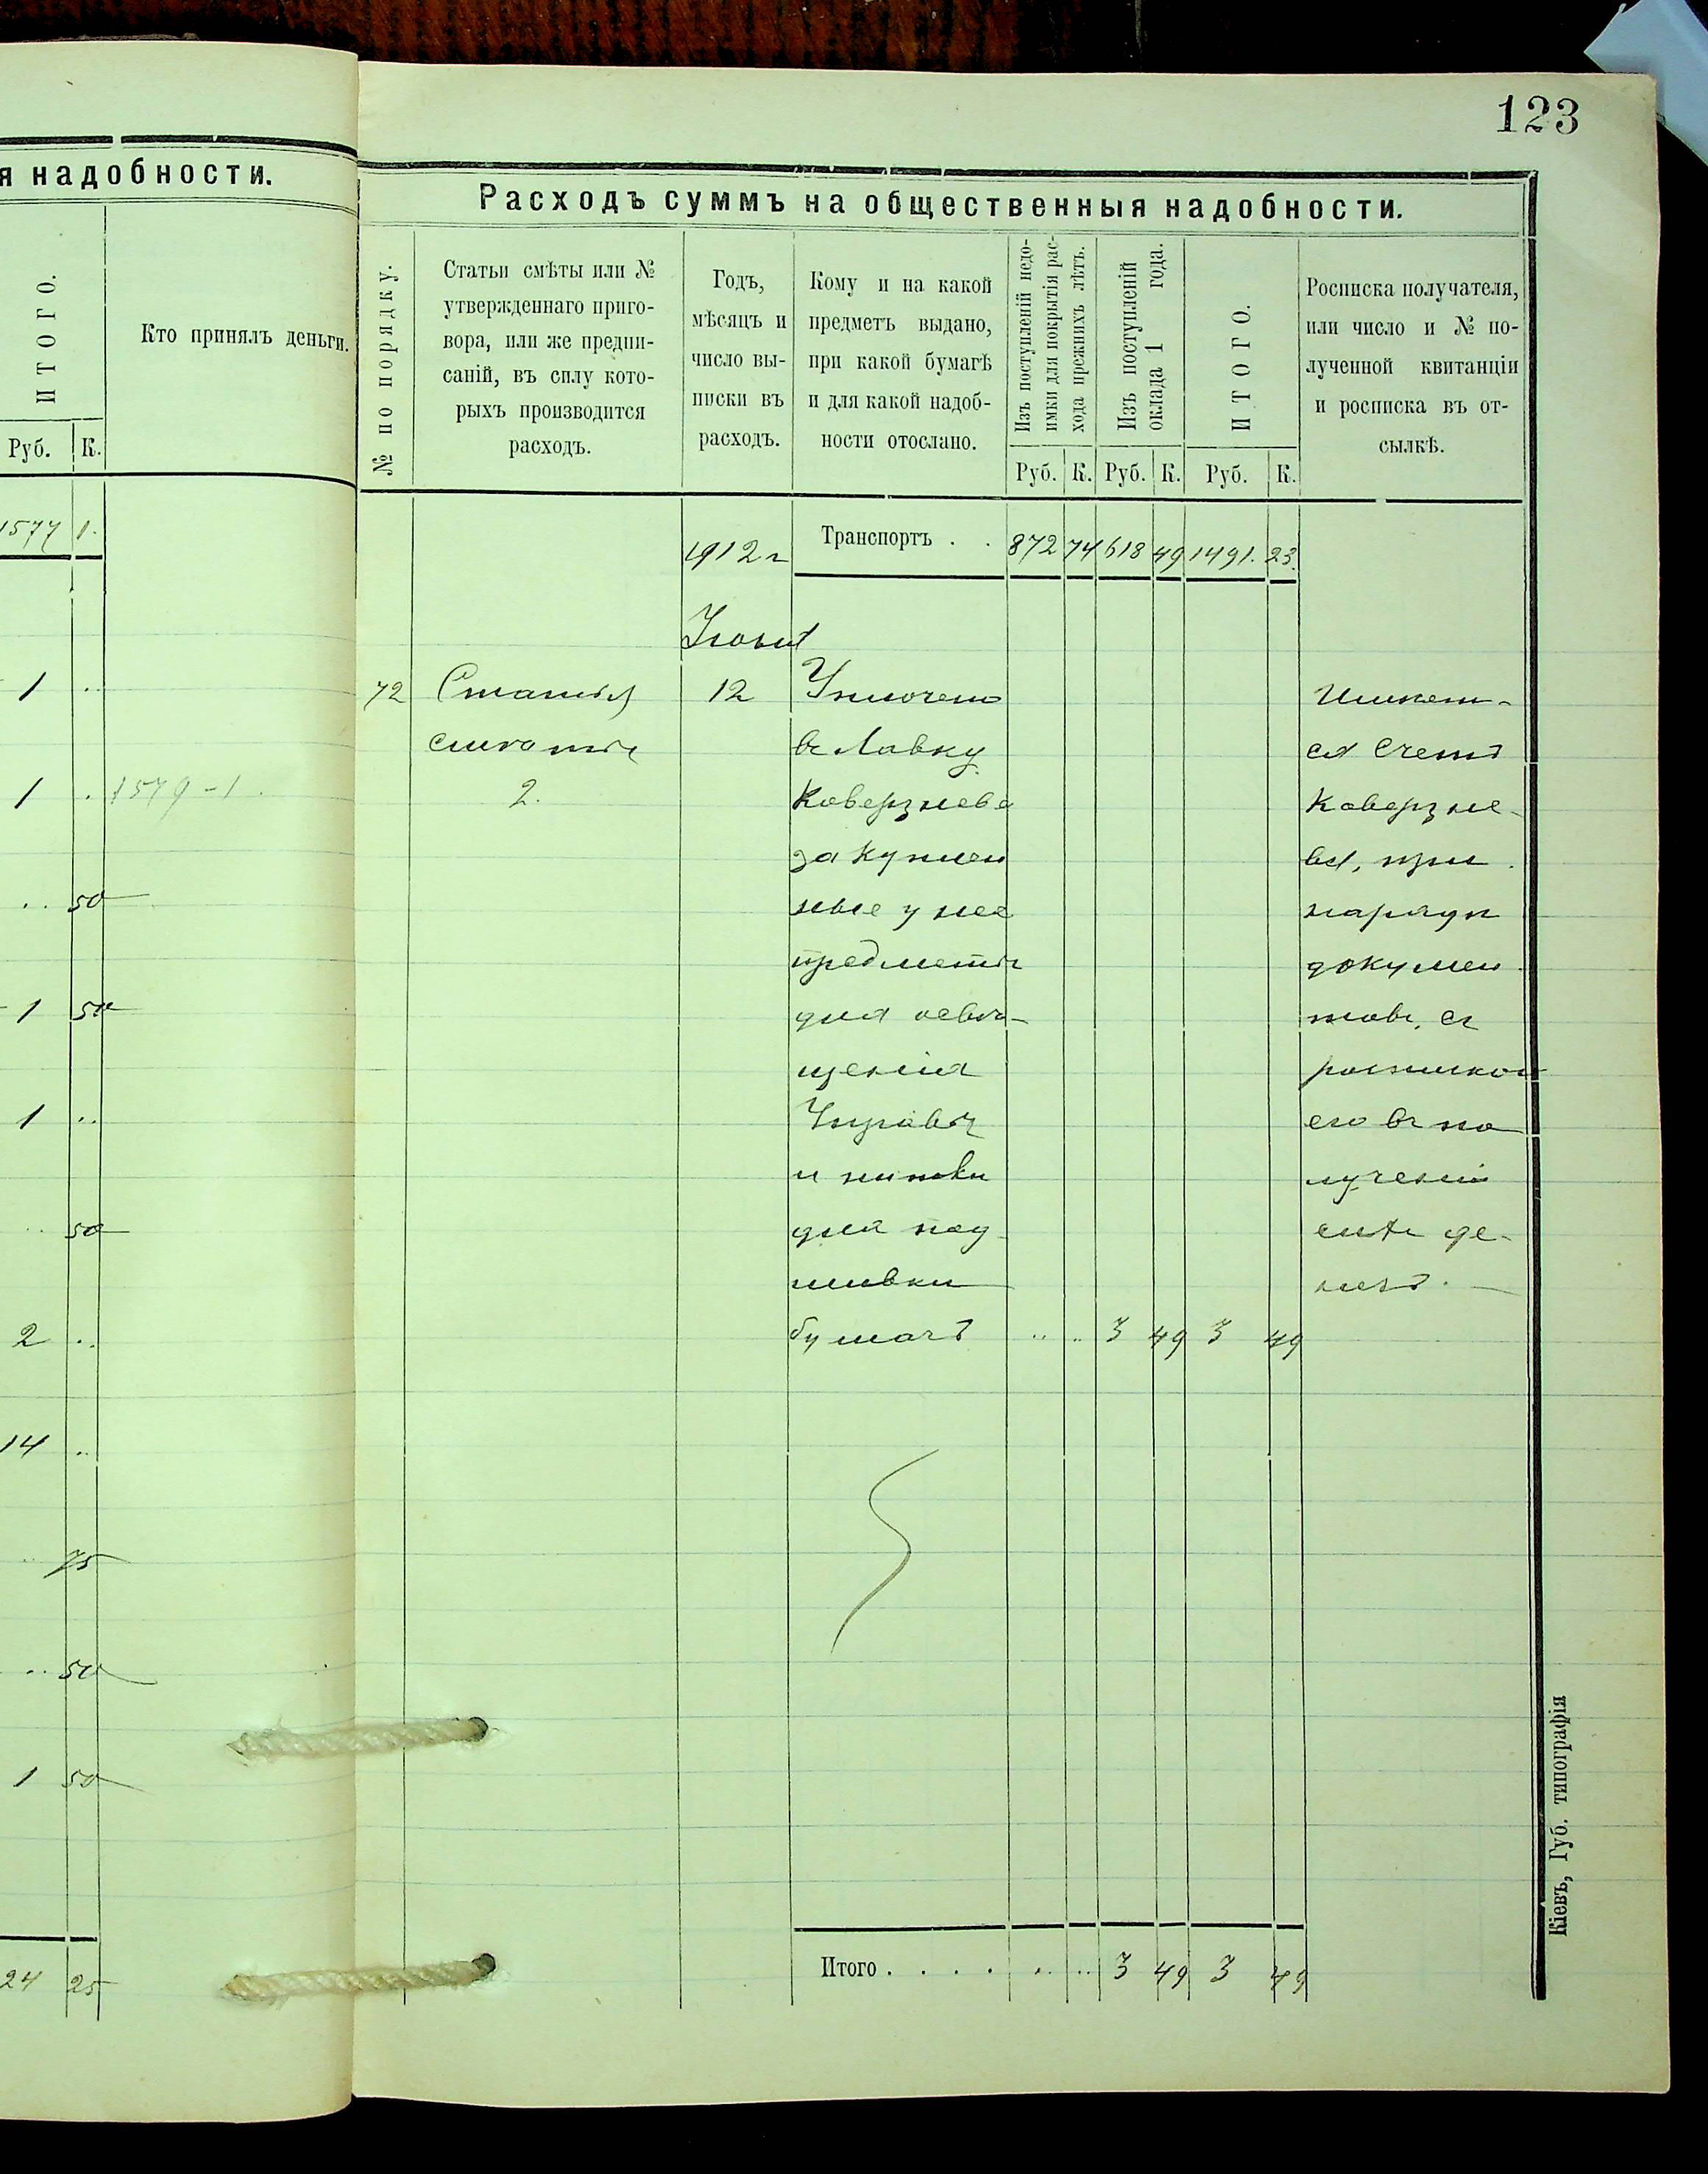 123
я надобности.
ИТОГО.
Кто принялъ деньги.
Руб. К.
1577 1.
1 ..
1 . 1579-1.
.. 50
1 50
1 ..
.. 50
2 ..
14 ..
.. 75
.. 50
1 50
24 25
Расходъ суммъ на общественныя надобности.
№ по порядку.
Статьи смѣты или №
утвержденнаго приго-
вора, или же предпи-
саній, въ силу кото-
рыхъ производится
расходъ.
Годъ,
мѣсяцъ и
число вы-
писки въ
расходъ.
Кому и на какой
предметъ выдано,
при какой бумагѣ
и для какой надоб-
ности отослано.
Изъ поступленій недо-
имки для покрытія рас-
хода прежнихъ лѣтъ.
Изъ поступленій
оклада 1 года.
ИТОГО.
Росписка получателя,
или число и № по-
лученной квитанціи
и росписка въ от-
сылкѣ.
Руб. К. Руб. К. Руб. К.
1912 г Транспортъ . . 872 74 618 49 1491. 23.
72 Статья 12 Уплочено
смѣты въ Лавку
2. Коверзнева
за куплен
ные у нее
предметы
для освѣ-
щенія
Управы
и нитки
для под
шивки
бумагъ .. .. 3 49 3 49
Имѣет-
ся Счетъ
Коверзне-
ва, при
нарядѣ
докумен
товъ, съ
роспиской
его въ по
лученіи
сихъ де-
негъ.
Итого . . . . .. .. 3 49 3 49
Кіевъ, Губ. типографія